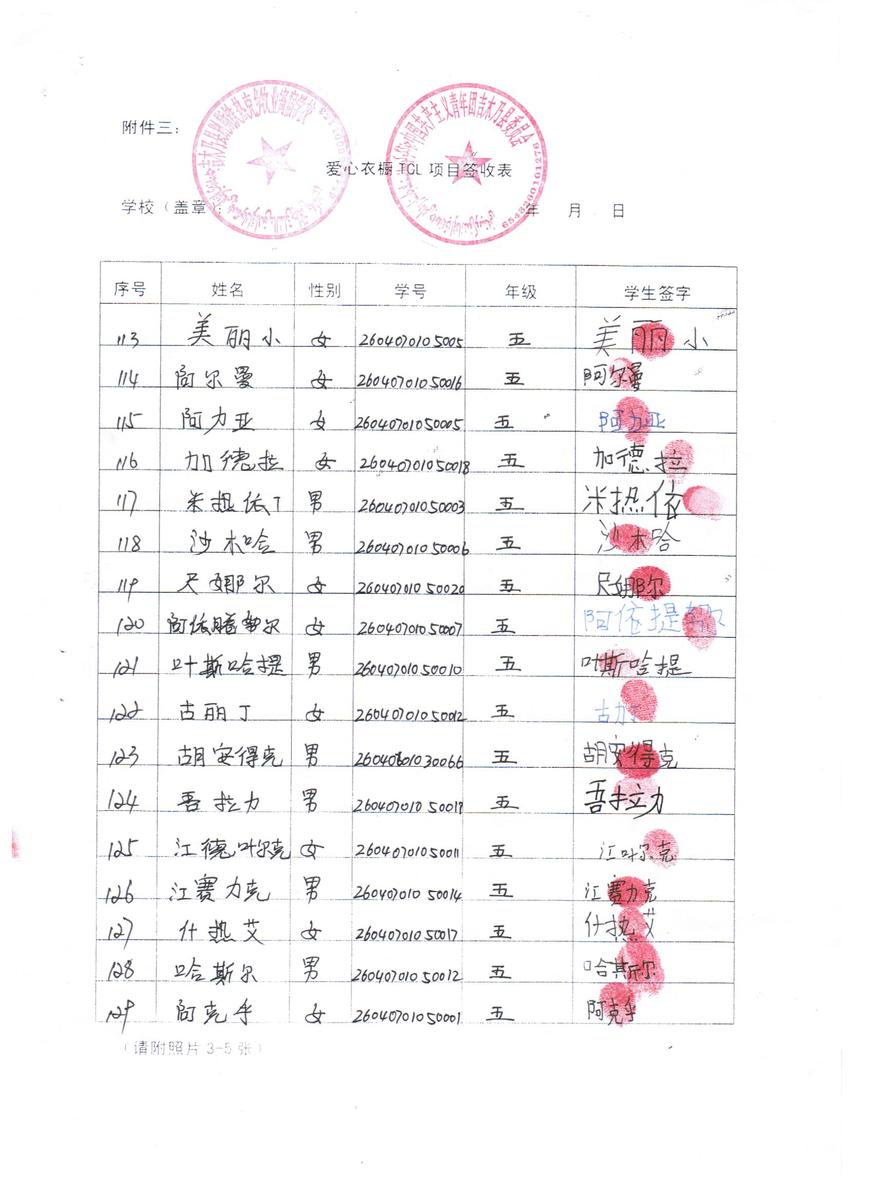 附件三：
爱心衣橱TCL项目签收表
学校（盖章）： 年 月 日
共产主义青年团吉木乃县委员会
6543260010121976
序号 姓名 性别 学号 年级 学生签字
113 美丽小 女 2604070105005 五 美丽小
114 阿尔曼 女 26040701050016 五 阿尔曼
115 阿力亚 女 26040701050005 五 阿力亚
116 加德拉 女 26040701050018 五 加德拉
117 米热依丁 男 26040701050003 五 米热依
118 沙木哈 男 26040701050006 五 沙木哈
119 尺娜尔 女 26040701050020 五 尺娜尔
120 女 26040701050007 五 阿依提努尔
121 叶斯哈提 男 26040701050010 五 叶斯哈提
122 古丽丁 女 26040701050012 五 古力
123 胡安得克 男 26040601030066 五 胡安得克
124 吾拉力 男 26040701050019 五 吾拉力
125 江德叶尔克 女 26040701050011 五 江叶尔克
126 江赛力克 男 26040701050014 五 江赛力克
127 什热艾 女 26040701050017 五 什热艾
128 哈斯尔 男 26040701050012 五 哈斯尔
129 阿克乎 女 26040701050001 五 阿克乎
（请附照片3-5张）